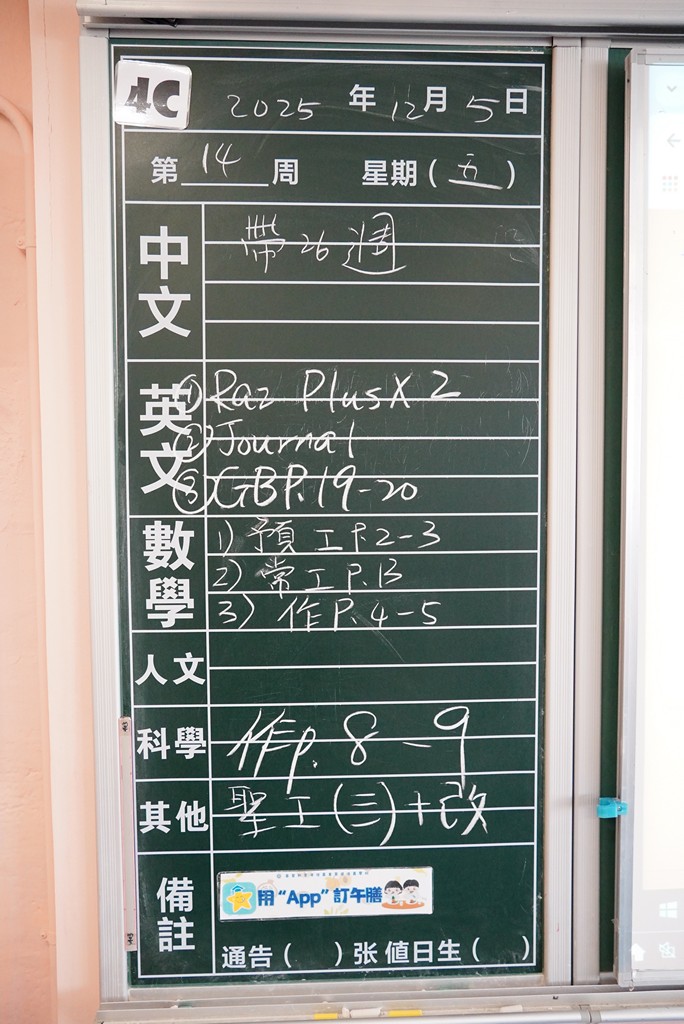 4C
2025 年 12 月 5 日
第 14 周 星期 ( 五 )
中文
帶 26 週
英文
① Raz Plus X 2
② Journal
③ GB P.19-20
數學
1) 預工 P.2-3
2) 常工 P.13
3) 作 P.4-5
人文
科學
作 p. 8 - 9
其他
聖工 (三) + 改
備註
用 "App" 訂午膳
通告 ( ) 张 值日生 ( )